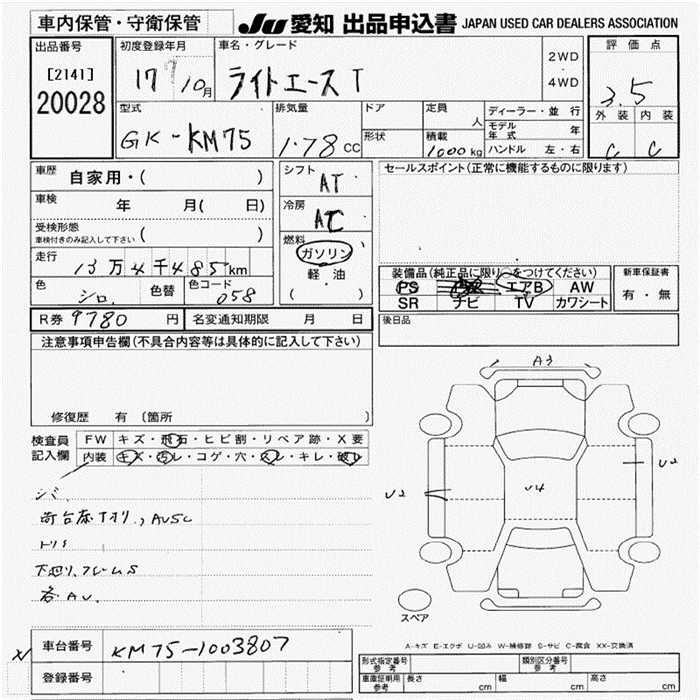 車内保管・守衛保管
JU 愛知 出品申込書 JAPAN USED CAR DEALERS ASSOCIATION
出品番号
[2141]
20028
初度登録年月
17 10月
車名・グレード
ライトエース T
2WD
・
4WD
評価点
3.5
外装 内装
C C
型式
GK-KM75
排気量
1.78 cc
ドア
形状
定員
人
積載
1000 kg
ディーラー・並行
モデル年式 年
ハンドル 左・右
車歴
自家用・( )
車検
年 月( 日)
受検形態
車検付きのみ記入して下さい ( )
走行
13万4千485km
色
シロ
色替
色コード
058
シフト
AT
冷房
AC
燃料
ガソリン
軽・油
( )
セールスポイント(正常に機能するものに限ります)
装備品(純正品に限り○をつけてください)
PS エアB AW
SR ナビ TV カワシート
新車保証書
有・無
R券 9780 円
名変通知期限 月 日
後日品
注意事項申告欄(不具合内容等は具体的に記入して下さい)
修復歴 有 〔箇所 〕
検査員
記入欄
FW キズ・飛石・ヒビ割・リペア跡・X要
内装 キズ・汚レ・コゲ・穴・スレ・キレ・破レ
シミ
荷台床下オリ, AUSC
トリミ
下廻リ, フレームS
各AU
A3
U2
U4
U2
スペア
A-キズ E-エクボ U-凹み W-補修跡 S-サビ C-腐食 XX-交換済
車台番号 KM75-1003807
登録番号
形式指定番号
参考
類別区分番号
参考
車庫証明用
参考
長さ cm 幅 cm 高さ cm